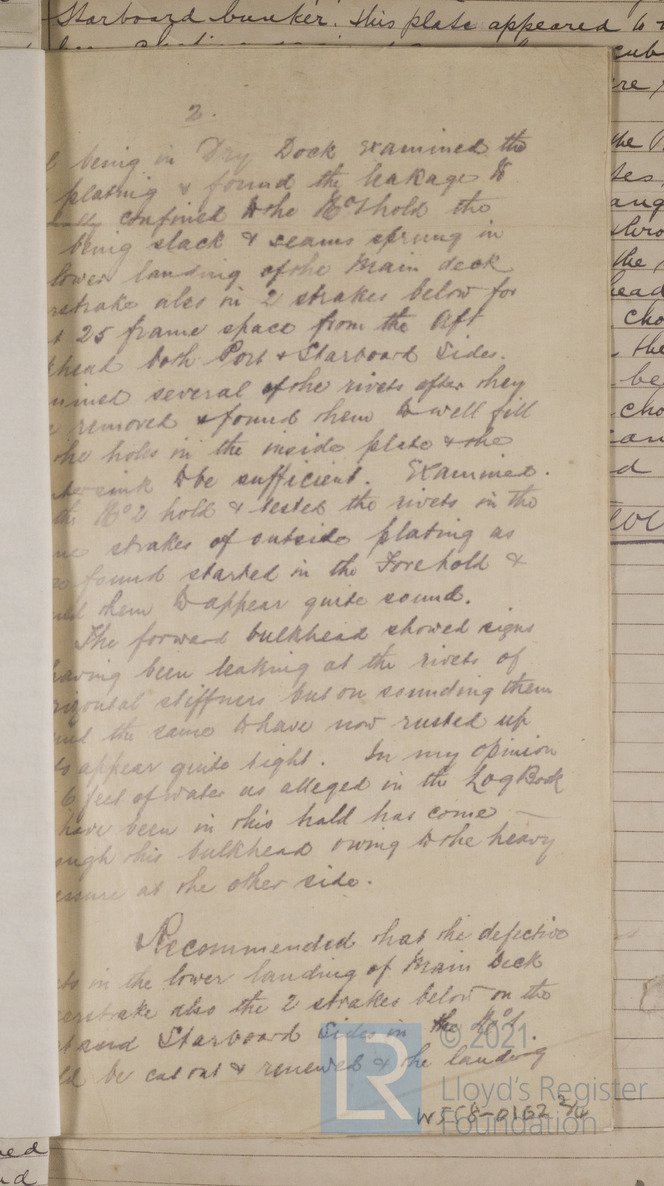 Starboard bunker. This plate appeared to
2.
being in Dry Dock Examined the
plating & found the leakage to
confined to the No 1 hold the
being slack & seams sprung in
lower landing of the Main deck
strake also in 2 strakes below for
25 frame space from the Aft
head both Port & Starboard Sides.
ined several of the rivets after they
removed & found them to well fill
the holes in the inside plate & the
sink to be sufficient. Examined.
the No 2 hold & tested the rivets in the
strakes of outside plating as
found started in the Forehold &
them to appear quite sound.
The forward bulkhead showed signs
having been leaking at the rivets of
rizontal stiffners but on sounding them
the same to have now rusted up
to appear quite tight. In my opinion
6 feet of water as alleged in the Log Book
have been in this hold has come
ough this bulkhead owing to the heavy
essure at the other side.
Recommended that the defective
ets in the lower landing of Main Deck
erstrake also the 2 strakes below on the
and Starboard Sides in the No 1.
ld be cut out & renewed & the landing
© 2021
LR
Lloyd's Register
Foundation
W558-0162 2/4